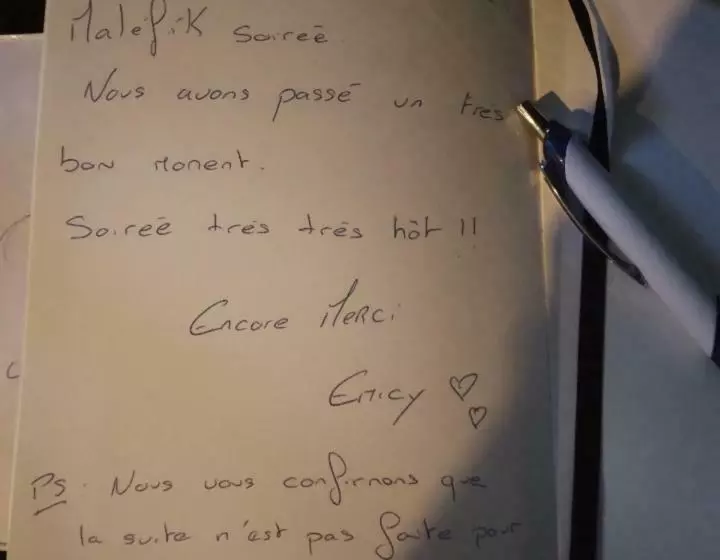 Malefik Soireé
Nous avons passé un tres
bon moment.
Soireé trés trés hôt !!
Encore Merci
Emicy ♡
♡
PS. Nous vous confirmons que
la suite n'est pas faite pour